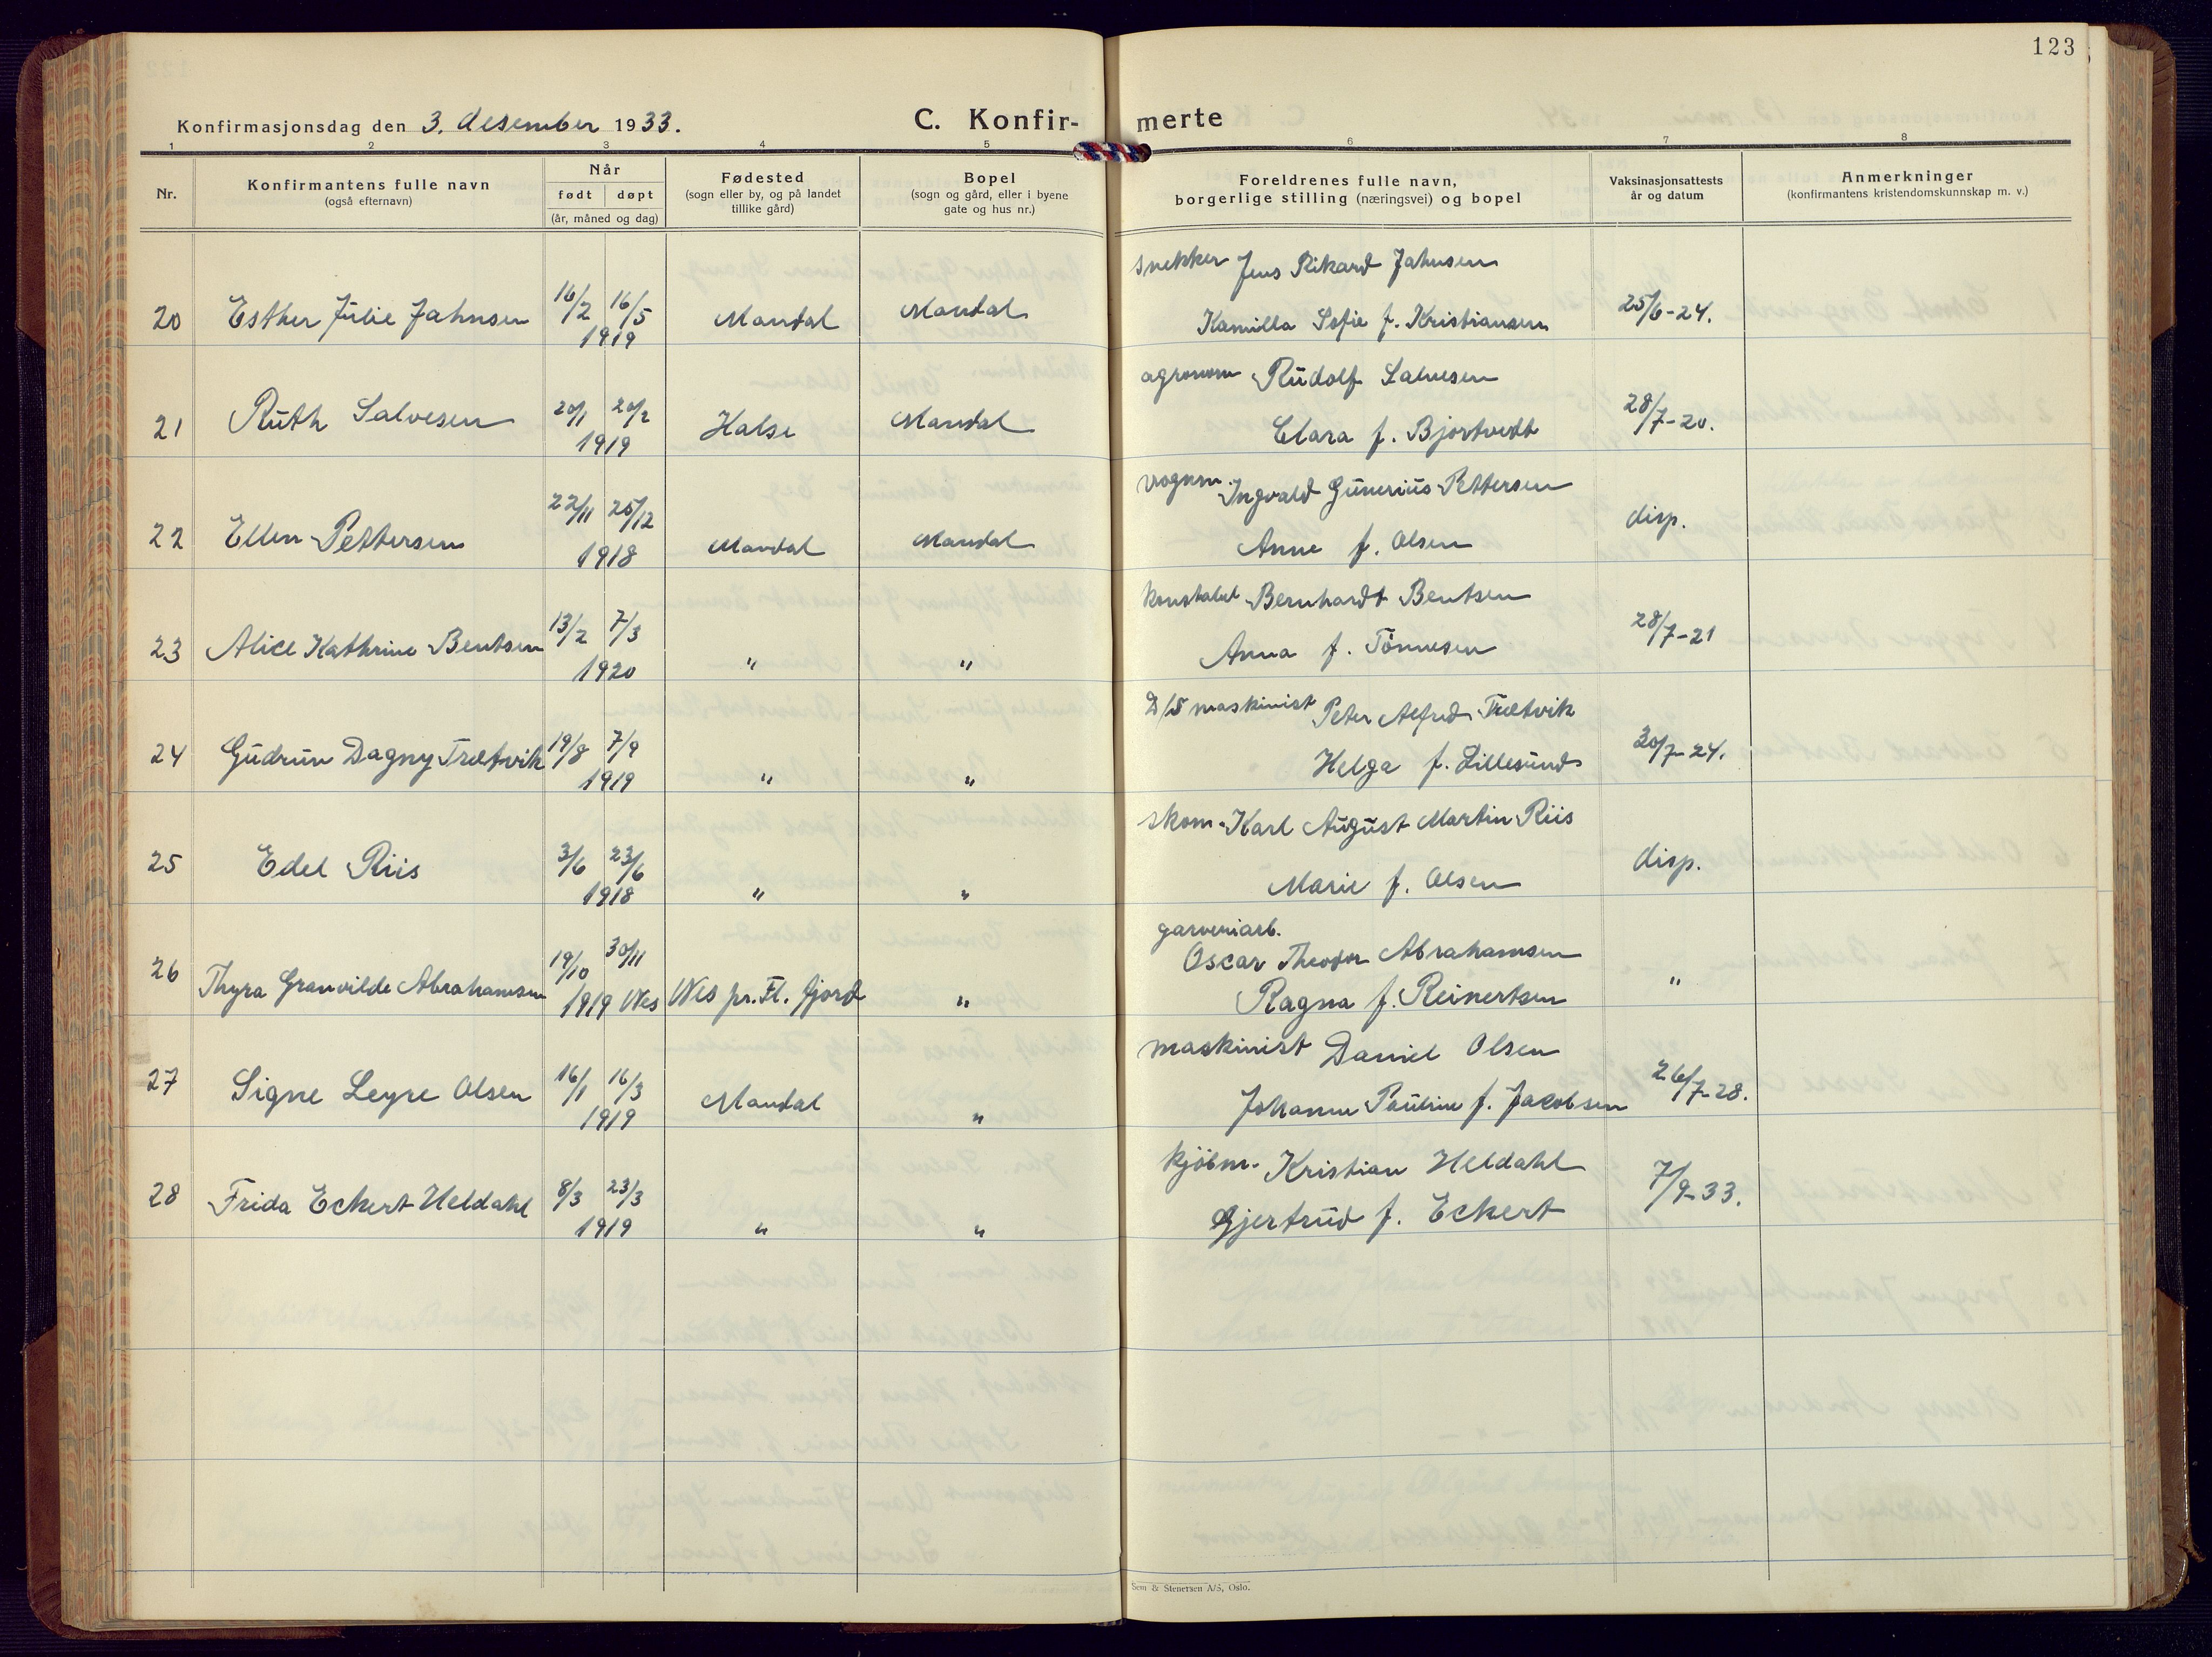 123
Konfirmasjonsdag den 3. desember 1933.
C. Konfir- merte
1 2 3 4 5 6 7 8
Nr.
Konfirmantens fulle navn
(også efternavn)
Når
født døpt
(år, måned og dag)
Fødested
(sogn eller by, og på landet
tillike gård)
Bopel
(sogn og gård, eller i byene
gate og hus nr.)
Foreldrenes fulle navn,
borgerlige stilling (næringsvei) og bopel
Vaksinasjonsattests
år og datum
Anmerkninger
(konfirmantens kristendomskunnskap m. v.)
snekker Jens Rikard Jahnsen
20 Esther Julie Jahnsen 16/2 16/5 Mandal Mandal Kamilla Sofie f. Kristiansen 25/6-24.
1919
agronom Rudolf Salvesen
21 Ruth Salvesen 20/1 20/2 Halse Mandal Clara f. Bjortvedt 28/7-20.
1919
vognm. Ingvald Gunerius Pettersen
22 Ellen Pettersen 22/11 25/12 Mandal Mandal Anne f. Olsen disp.
1918
konstabel Bernhardt Bentsen
23 Alice Kathrine Bentsen 13/2 7/3 " " Anna f. Tönnesen 28/7-21
1920
D/S maskinist Peter Alfred Trætvik
24 Gudrun Dagny Trætvik 19/8 7/9 " " Helga f. Lillesund 30/7-24.
1919
skom. Karl August Martin Riis
25 Edel Riis 3/6 23/6 " " Marie f. Olsen disp.
1918
garveriarb.
Oscar Theodor Abrahamsen
26 Thyra Granvilde Abrahamsen 19/10 30/11 Nes pr. Fl. fjord " Ragna f. Reinertsen "
1919 Nes
maskinist Daniel Olsen
27 Signe Leyre Olsen 16/1 16/3 Mandal " Johanne Pauline f. Jacobsen 26/7-28.
1919
kjöbm. Kristian Heldahl
28 Frida Eckert Heldahl 8/3 23/3 " " Gjertrud f. Eckert 7/9-33.
1919
Sem & Stenersen A/S, Oslo.